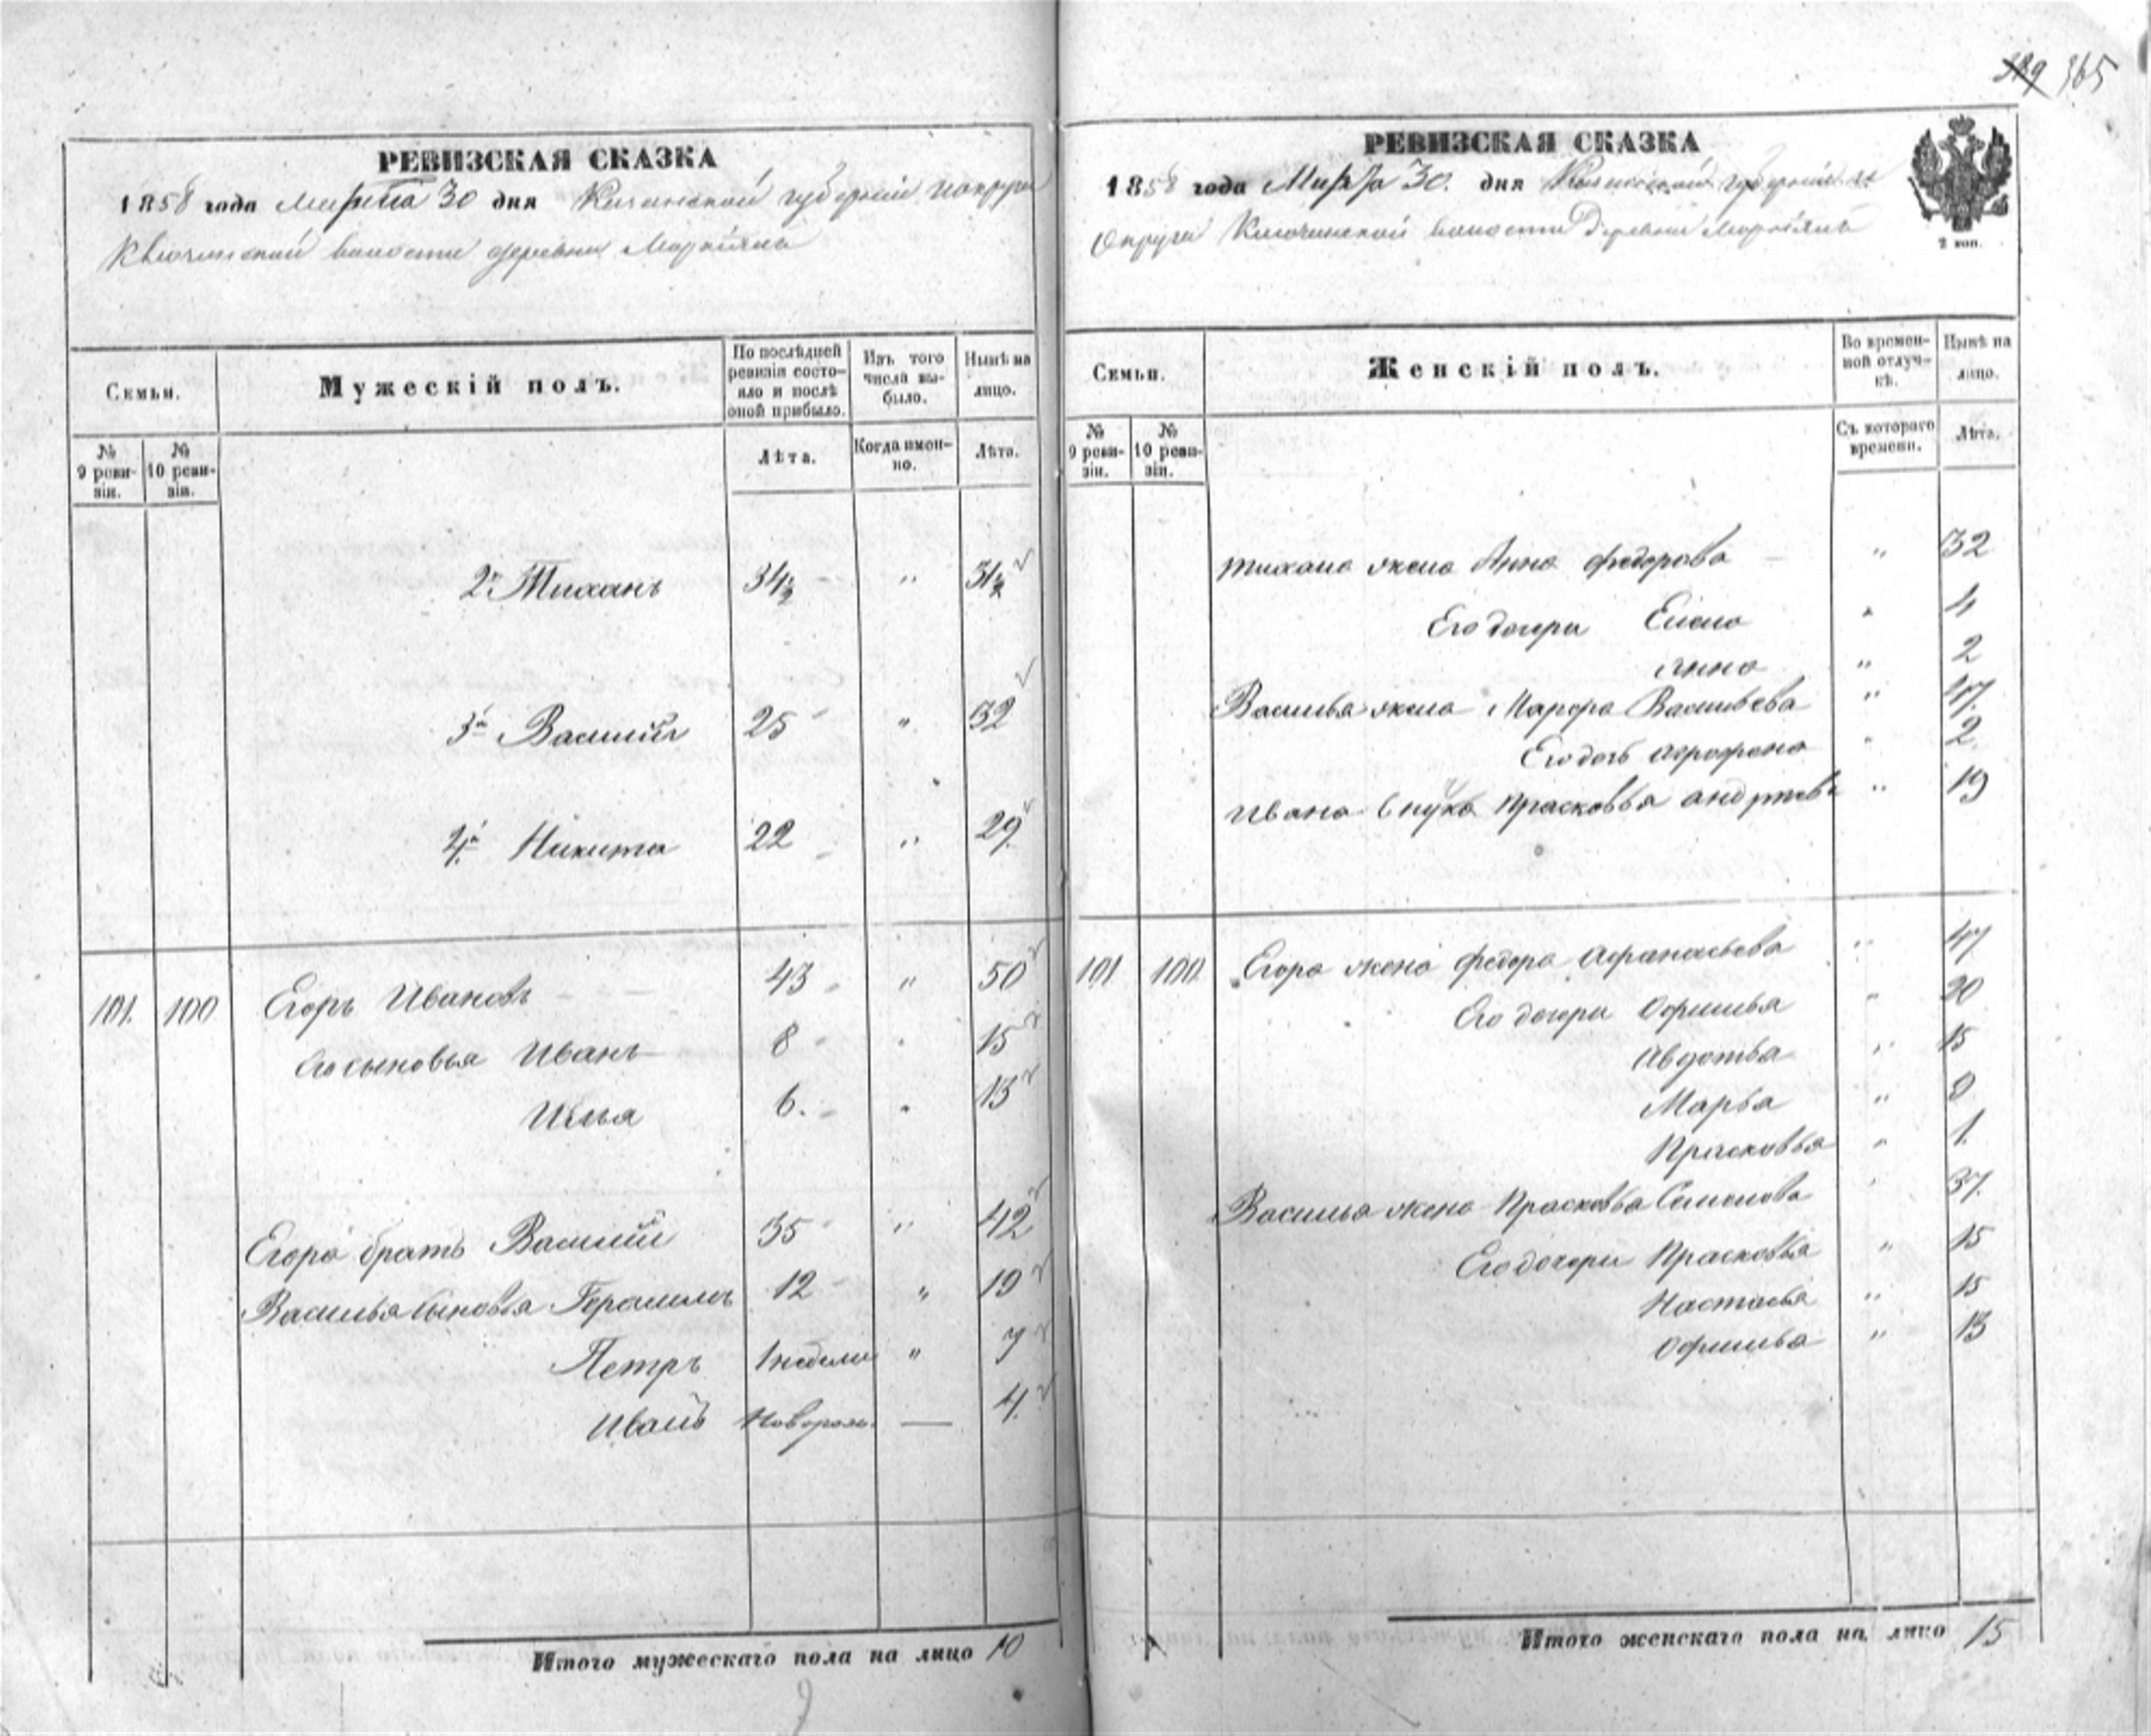 389 365
РЕВИЗСКАЯ СКАЗКА
1858 года Марта 30 дня Казанской губернии и округи
Ключинской волости деревни
Семьи.
Мужескій полъ.
По послѣдней ревизіи состояло и послѣ оной прибыло.
Изъ того числа выбыло.
Нынѣ на лицо.
№ 9 ревизіи.
№ 10 ревизіи.
Лѣта.
Когда именно.
Лѣта.
2й Тиханъ 34½ " 31½
3й Василий 25 " 32
4й Никита 22 " 29
101. 100 Егоръ Ивановъ 43 " 50
Его сыновья Иванъ 8 " 15
Илья 6. " 13
Егора братъ Василий 35 " 42
Василья сыновья Герасимъ 12 " 19
Петръ 1 недели " 7
Иванъ Новорож. — 4.
Итого мужескаго пола на лицо 10
РЕВИЗСКАЯ СКАЗКА
1858 года Марта 30. дня Казанской губернии и
округи Ключинской волости Деревни
2 коп.
Семьи.
Женскій полъ.
Во временной отлучкѣ.
Нынѣ на лицо.
№ 9 ревизіи.
№ 10 ревизіи.
Съ котораго времени.
Лѣта.
Тихана жена Анна Федорова " 32
Его дочери Елена " 4
Анна " 2
Василья жена Марфа Васильева "
Его дочь Аграфена " 2
Ивана Прасковья " 19
101 100. Егора жена Федора Афанасьева " 47
Его дочери Офимья " 20
Авдотья " 15
Марья " 9
Прасковья " 1.
Василья жена Прасковья Семенова " 37.
Его дочери Прасковья " 15
Настасья " 15
Офимья " 13
Итого женскаго пола на лицо 15